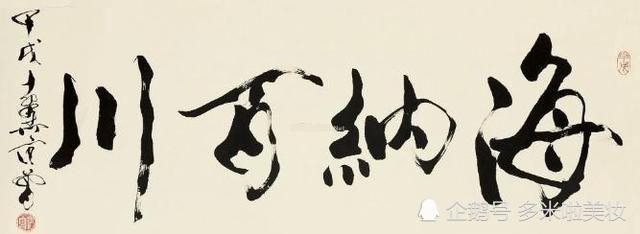 海納百川
甲戌十翼范曾
企鹅号 多米啦美妆